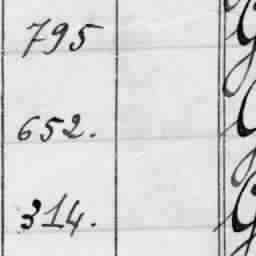 795
652.
314.